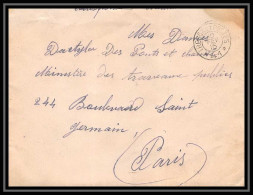 Mes Dames
Dactylos Des Ponts et chau
Ministère des travaux publics
244 Boulevard Saint
germain,
(Paris